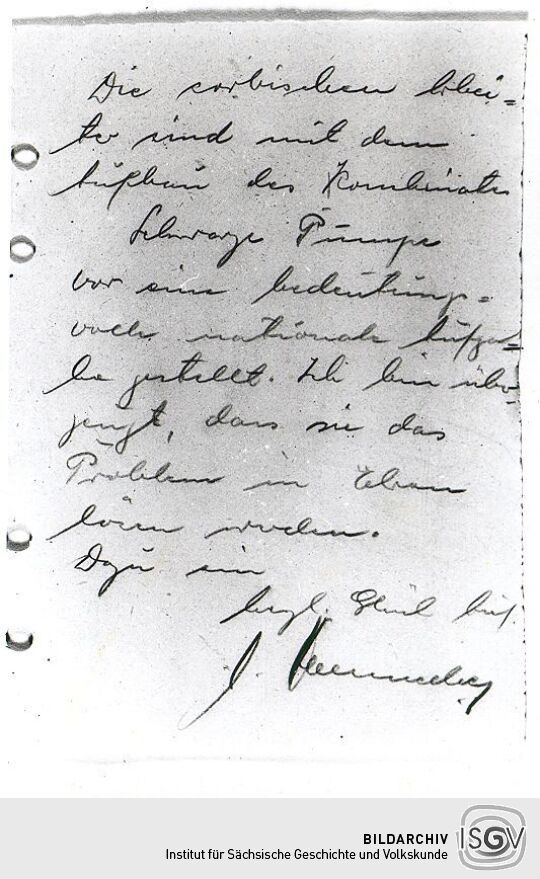 Die sorbischen Arbei=
ter sind mit dem
Aufbau des Kombinates
Schwarze Pumpe
vor eine bedeutungs=
volle nationale Aufga=
be gestellt. Ich bin über=
zeugt, dass sie das
Problem in Ehren
lösen werden.
Dazu ein
herzl. Glück auf.
J.
BILDARCHIV
ISGV
Institut für Sächsische Geschichte und Volkskunde